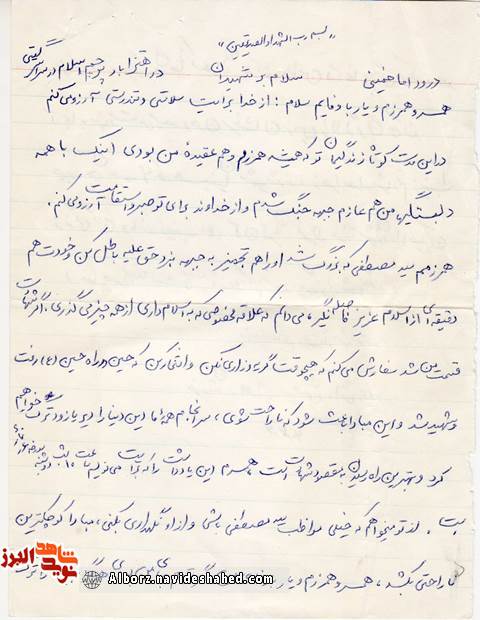 "بسم رب الشهداء و الصدیقین"
درود بر امام خمینی سلام بر شهیدان در اهتزاز باد پرچم اسلام در سراسر گیتی
همسر و همرزم و یار باوفایم سلام: از خدا برایت سلامتی و تندرستی آرزو می کنم
در این مدت کوتاه زندگیمان تو که همیشه همرزم و هم عقیده من بودی اینک با همه
دلبستگیها، من هم عازم جبهه جنگ شدم و از خداوند برای تو صبر و استقامت آرزو می کنم.
همرزمم سید مصطفی که بزرگ شد او را هم تجهیز به جبهه نبرد حق علیه باطل کن و خودت هم
دقیقه ای از اسلام عزیز فاصله نگیر، می دانم که علاقه مخصوصی که به اسلام داری از همه چیز می گذری، اگر شهادت
قسمت من شد سفارش می کنم که هیچوقت گریه و زاری نکن و افتخار کن که حسین در راه حسین (ع) رفت
و شهید شد و این مبادا باعث شود که ناراحت شوی، سرانجام همه ما این دنیا را دیر یا زود ترک خواهیم
کرد و بهترین راه رسیدن به مقصود شهادت است، همسرم این یادداشت را که برایت می نویم ساعت ۱۰ شب دوشنبه
است. از تو میخواهم که خیلی مواظب سید مصطفی باشی و از او نگهداری بکنی، مبادا کوچکترین
ناراحتی بکشد، همسر و همرزم و یار
نوید شاهد البرز
Alborz.navideshahed.com